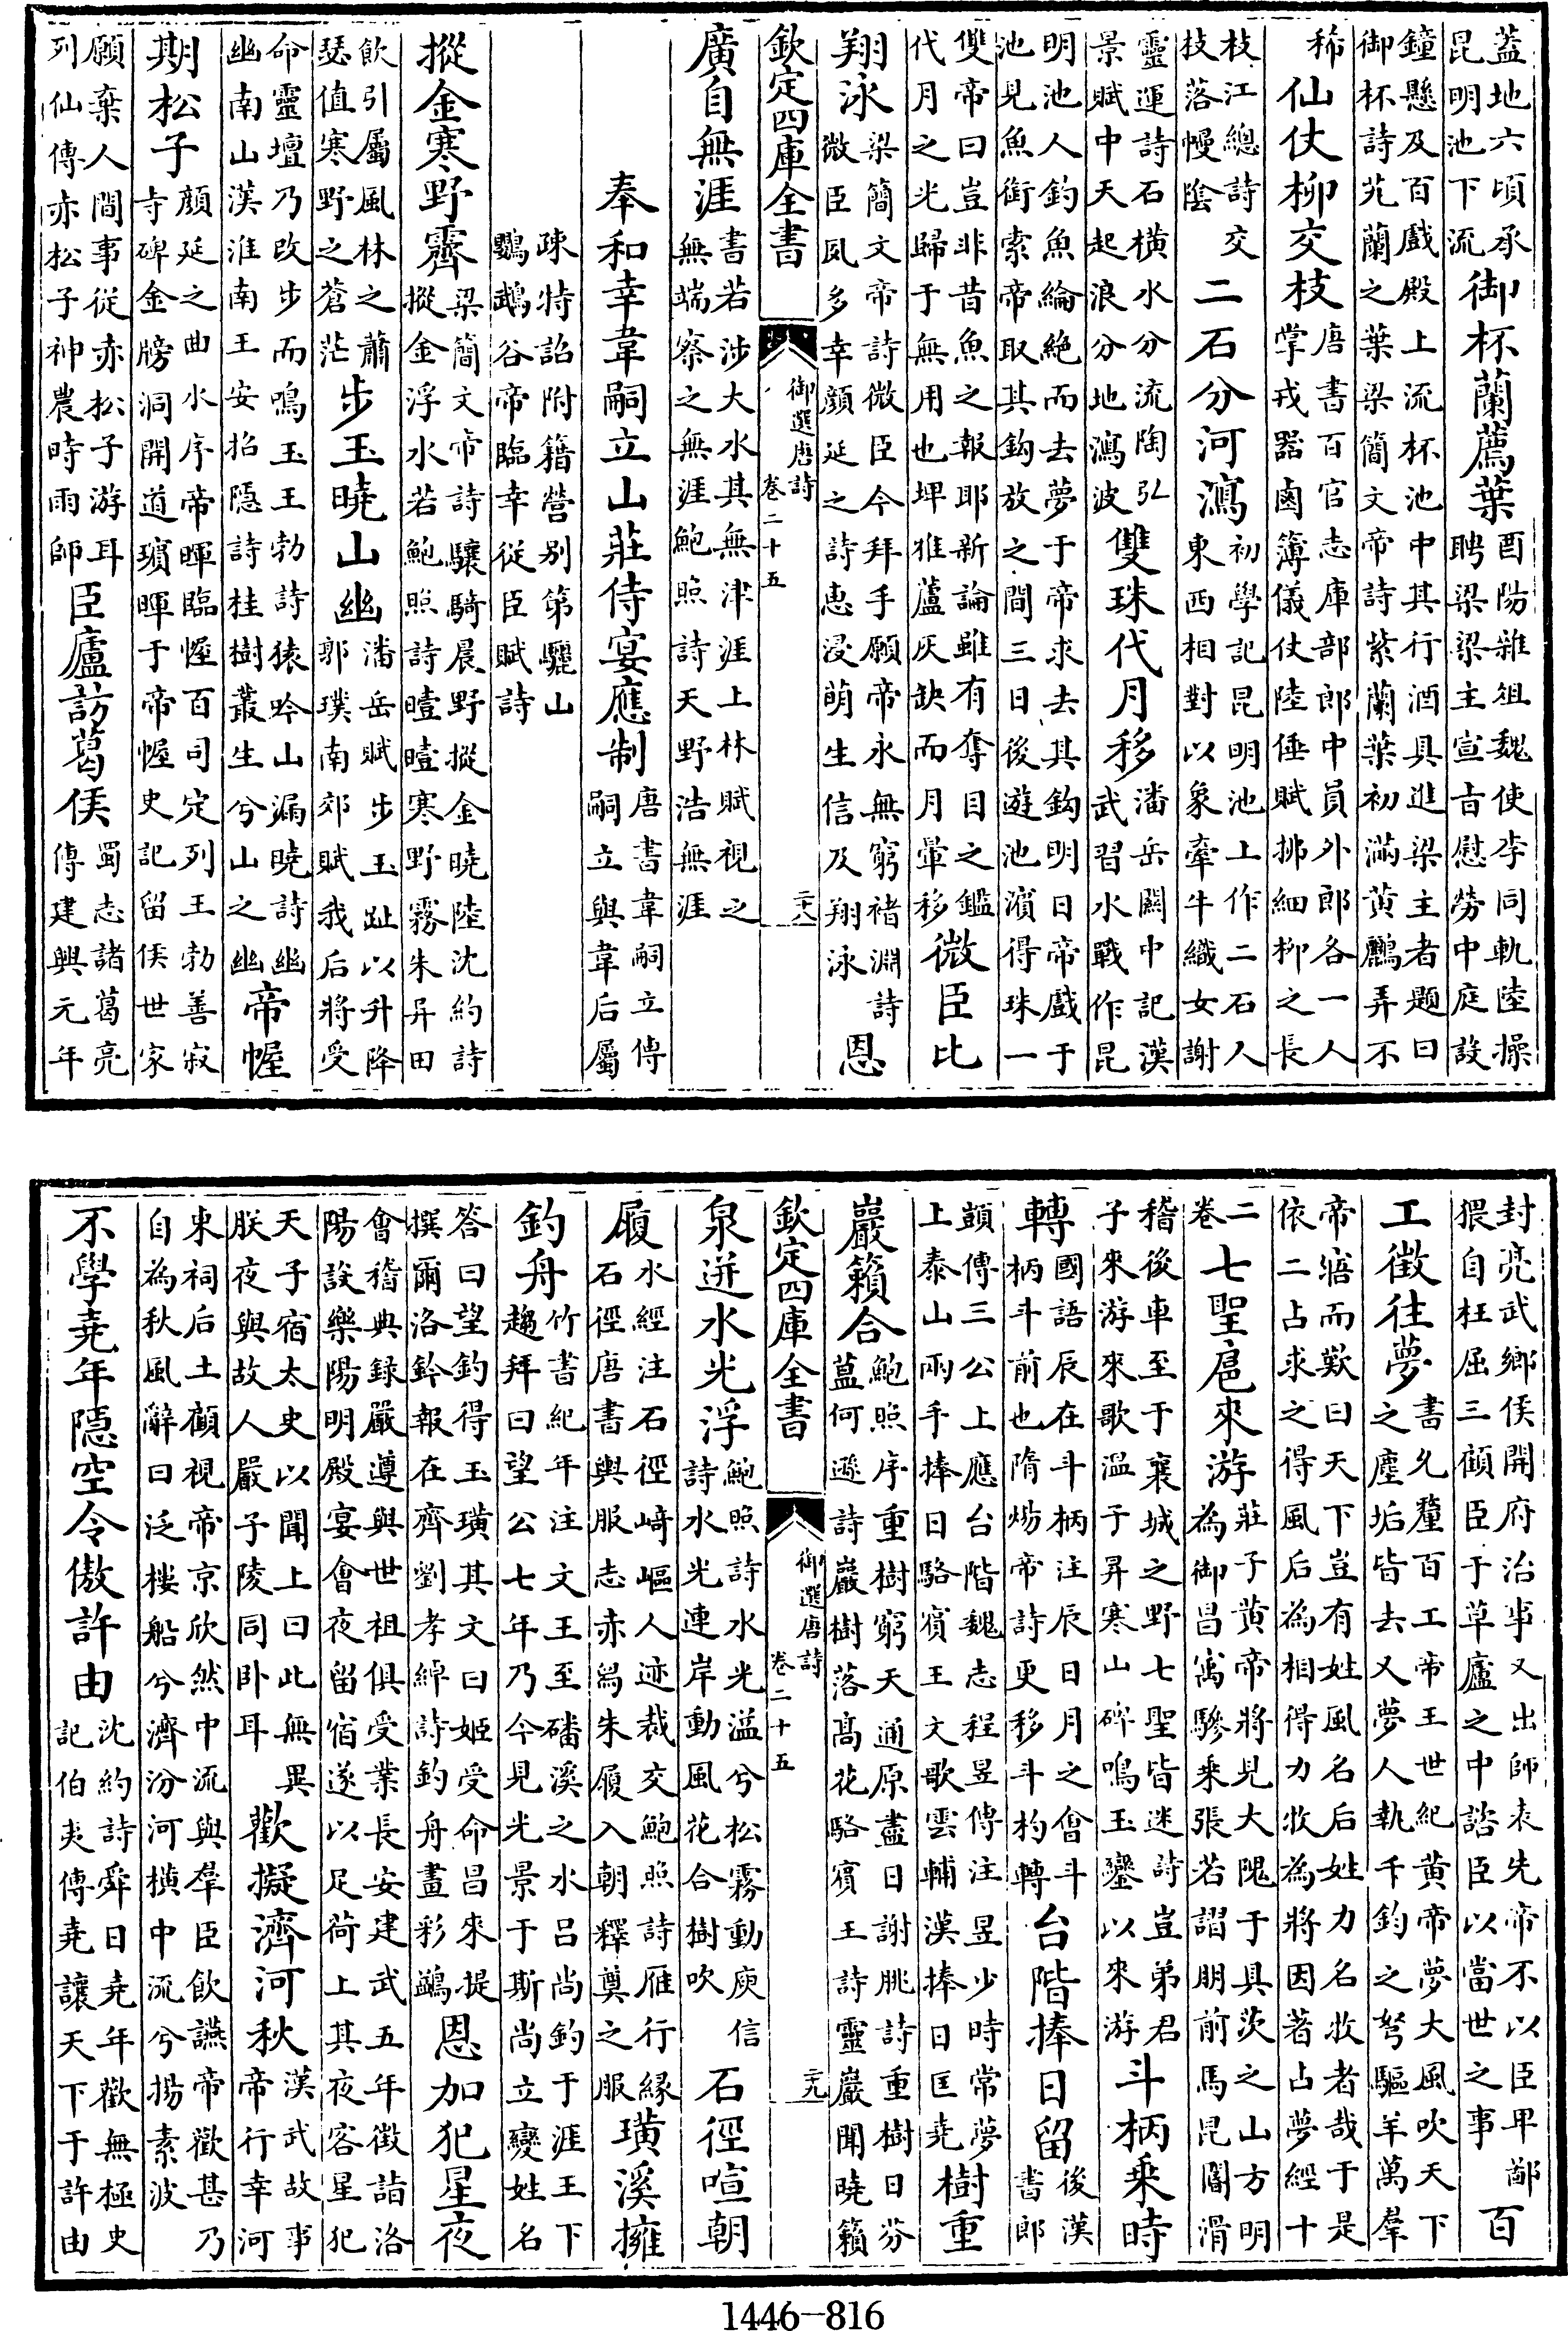 蓋地六頃承
昆明池下流
御杯蘭薦葉
酉陽雜俎魏使李同軌陸操
聘梁梁主宣旨慰勞中庭設
鐘懸及百戲殿上流杯池中其行酒具進梁主者題曰
御杯詩芄蘭之葉梁簡文帝詩紫蘭葉初滿黃鸝弄不
稀
仙仗柳交枝
唐書百官志庫部郎中員外郎各一人
掌戎器鹵簿儀仗陸倕賦拂細柳之長
枝江總詩交
枝落幔陰
二石分河瀉
初學記昆明池上作二石人
東西相對以象牽牛織女謝
靈運詩石橫水分流陶弘
景賦中天起浪分地瀉波
雙珠代月移
潘岳關中記漢
武習水戰作昆
明池人釣魚綸絕而去夢于帝求去其鈎明日帝戲于
池見魚銜索帝取其鈎放之間三日後遊池濱得珠一
雙帝曰豈非昔魚之報耶新論雖有奪目之鑑
代月之光歸于無用也埤雅蘆灰缺而月暈移
微臣比
翔泳
梁簡文帝詩微臣今拜手願帝永無窮褚淵詩
微臣夙多幸顏延之詩惠浸萌生信及翔泳
恩
欽定四庫全書
御選唐詩
卷二十五
二十八
廣自無涯
書若涉大水其無津涯上林賦視之
無端察之無涯鮑照詩天野浩無涯
奉和幸韋嗣立山莊侍宴應制
唐書韋嗣立傳
嗣立與韋后屬
疎特詔附籍營别第驪山
鸚鵡谷帝臨幸從臣賦詩
摐金寒野霽
梁簡文帝詩驤騎晨野摐金曉陸沈約詩
摐金浮水若鮑照詩曀曀寒野霧朱异田
飲引屬風林之蕭
瑟值寒野之蒼茫
步玉曉山幽
潘岳賦步玉趾以升降
郭璞南郊賦我后將受
命靈壇乃改步而鳴玉王勃詩猿吟山漏曉詩幽
幽南山漢淮南王安招隱詩桂樹叢生兮山之幽
帝幄
期松子
顔延之曲水序帝暉臨幄百司定列王勃善寂
寺碑金牓洞開道瓊暉于帝幄史記留侯世家
願棄人間事從赤松子游耳
列仙傳赤松子神農時雨師
臣廬訪葛侯
蜀志諸葛亮
傳建興元年
封亮武鄉侯開府治事又出師表先帝不以臣卑鄙
猥自枉屈三顧臣于草廬之中諮臣以當世之事
百
工徵往夢
書允釐百工帝王世紀黃帝夢大風吹天下
之塵垢皆去又夢人執千鈞之弩驅羊萬羣
帝寤而歎曰天下豈有姓風名后姓力名牧者哉于是
依二占求之得風后為相得力牧為將因著占夢經十
二
卷
七聖扈來游
莊子黃帝將見大隗于具茨之山方明
為御昌寓驂乘張若謵朋前馬昆閽滑
稽後車至于襄城之野七聖皆迷詩豈弟君
子來游來歌溫子昇寒山碑鳴玉鑾以來游
斗柄乘時
轉
國語辰在斗柄注辰日月之會斗
柄斗前也隋煬帝詩更移斗杓轉
台階捧日留
後漢
書郎
顗傳三公上應台階魏志程昱傳注昱少時常夢
上泰山兩手捧日駱賓王文歌雲輔漢捧日匡堯
樹重
巖籟合
鮑照序重樹窮天通原盡日謝朓詩重樹日芬
葐何遜詩巖樹落高花駱賓王詩靈巖聞曉籟
欽定四庫全書
御選唐詩
卷二十五
二十九
泉迸水光浮
鮑照詩水光溢兮松霧動庾信
詩水光連岸動風花合樹吹
石徑喧朝
履
水經注石徑﨑嶇人迹裁交鮑照詩雁行緣
石徑唐書輿服志赤舄朱履入朝釋奠之服
璜溪擁
釣舟
竹書紀年注文王至磻溪之水呂尚釣于涯王下
趨拜曰望公七年乃今見光景于斯尚立變姓名
答曰望釣得玉璜其文曰姬受命昌來提
撰爾洛鈐報在齊劉孝綽詩釣舟畫彩鷁
恩加犯星夜
會稽典録嚴遵與世祖俱受業長安建武五年徵詣洛
陽設樂陽明殿宴會夜留宿遂以足荷上其夜客星犯
天子宿太史以聞上曰此無異
朕夜與故人嚴子陵同卧耳
歡擬濟河秋
漢武故事
帝行幸河
東祠后土顧視帝京欣然中流與羣臣飲讌帝歡甚乃
自為秋風辭曰泛樓船兮濟汾河橫中流兮揚素波
不學堯年隱空令傲許由
沈約詩舜日堯年歡無極史
記伯夷傳堯讓天下于許由
1446-816